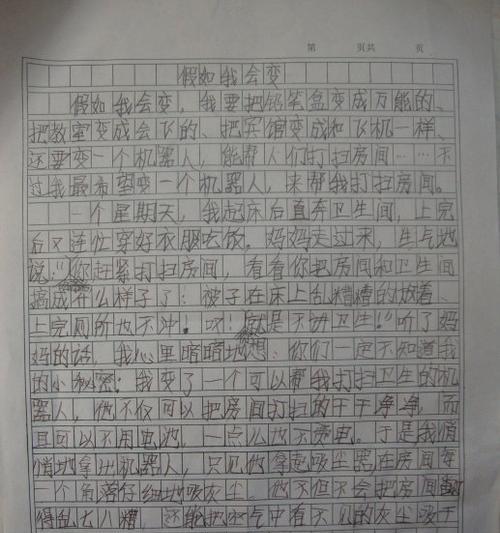 第 页共 页
假如我会变
假如我会变，我要把铅笔盒变成万能的、
把教室变成会飞的、把宾馆变成和飞机一样、
还要变一个机器人，能帮人们打扫房间……不
过我最希望变一个机器人，来帮我打扫房间。
一个星期天，我起床后直奔卫生间，上完
后又连忙穿好衣服吃饭。妈妈走过来，生气地
说：“你赶紧打扫房间，看看你把房间和卫生间
搞成什么样子了：被子在床上乱糟糟的放着、
上完厕所也不冲！哎！就是不讲卫生！”听了妈
妈的话，我心里暗暗地想：你们一定不知道我
的小秘密：我变了一个可以帮我打扫卫生的机
器人，他不仅可以把房间打扫的干干净净，而
且可以不用电池，一点儿也不费电。于是我悄
悄地拿出机器人，只见他拿起吸尘器在房间每
一个角落仔细地吸灰尘。他不但不会把房间
得乱七八糟，还能把空气中看不见的灰尘吸干